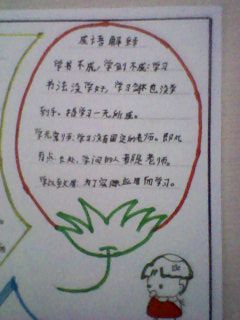 成语解释
学书不成，学剑不成：学习
书法没学好，学习剑术也没学
到手，指学习一无所成。
学无常师：学习没有固定的老师。即凡
有点长处，学问的人都是老师。
学以致用：为了实际应用而学习。